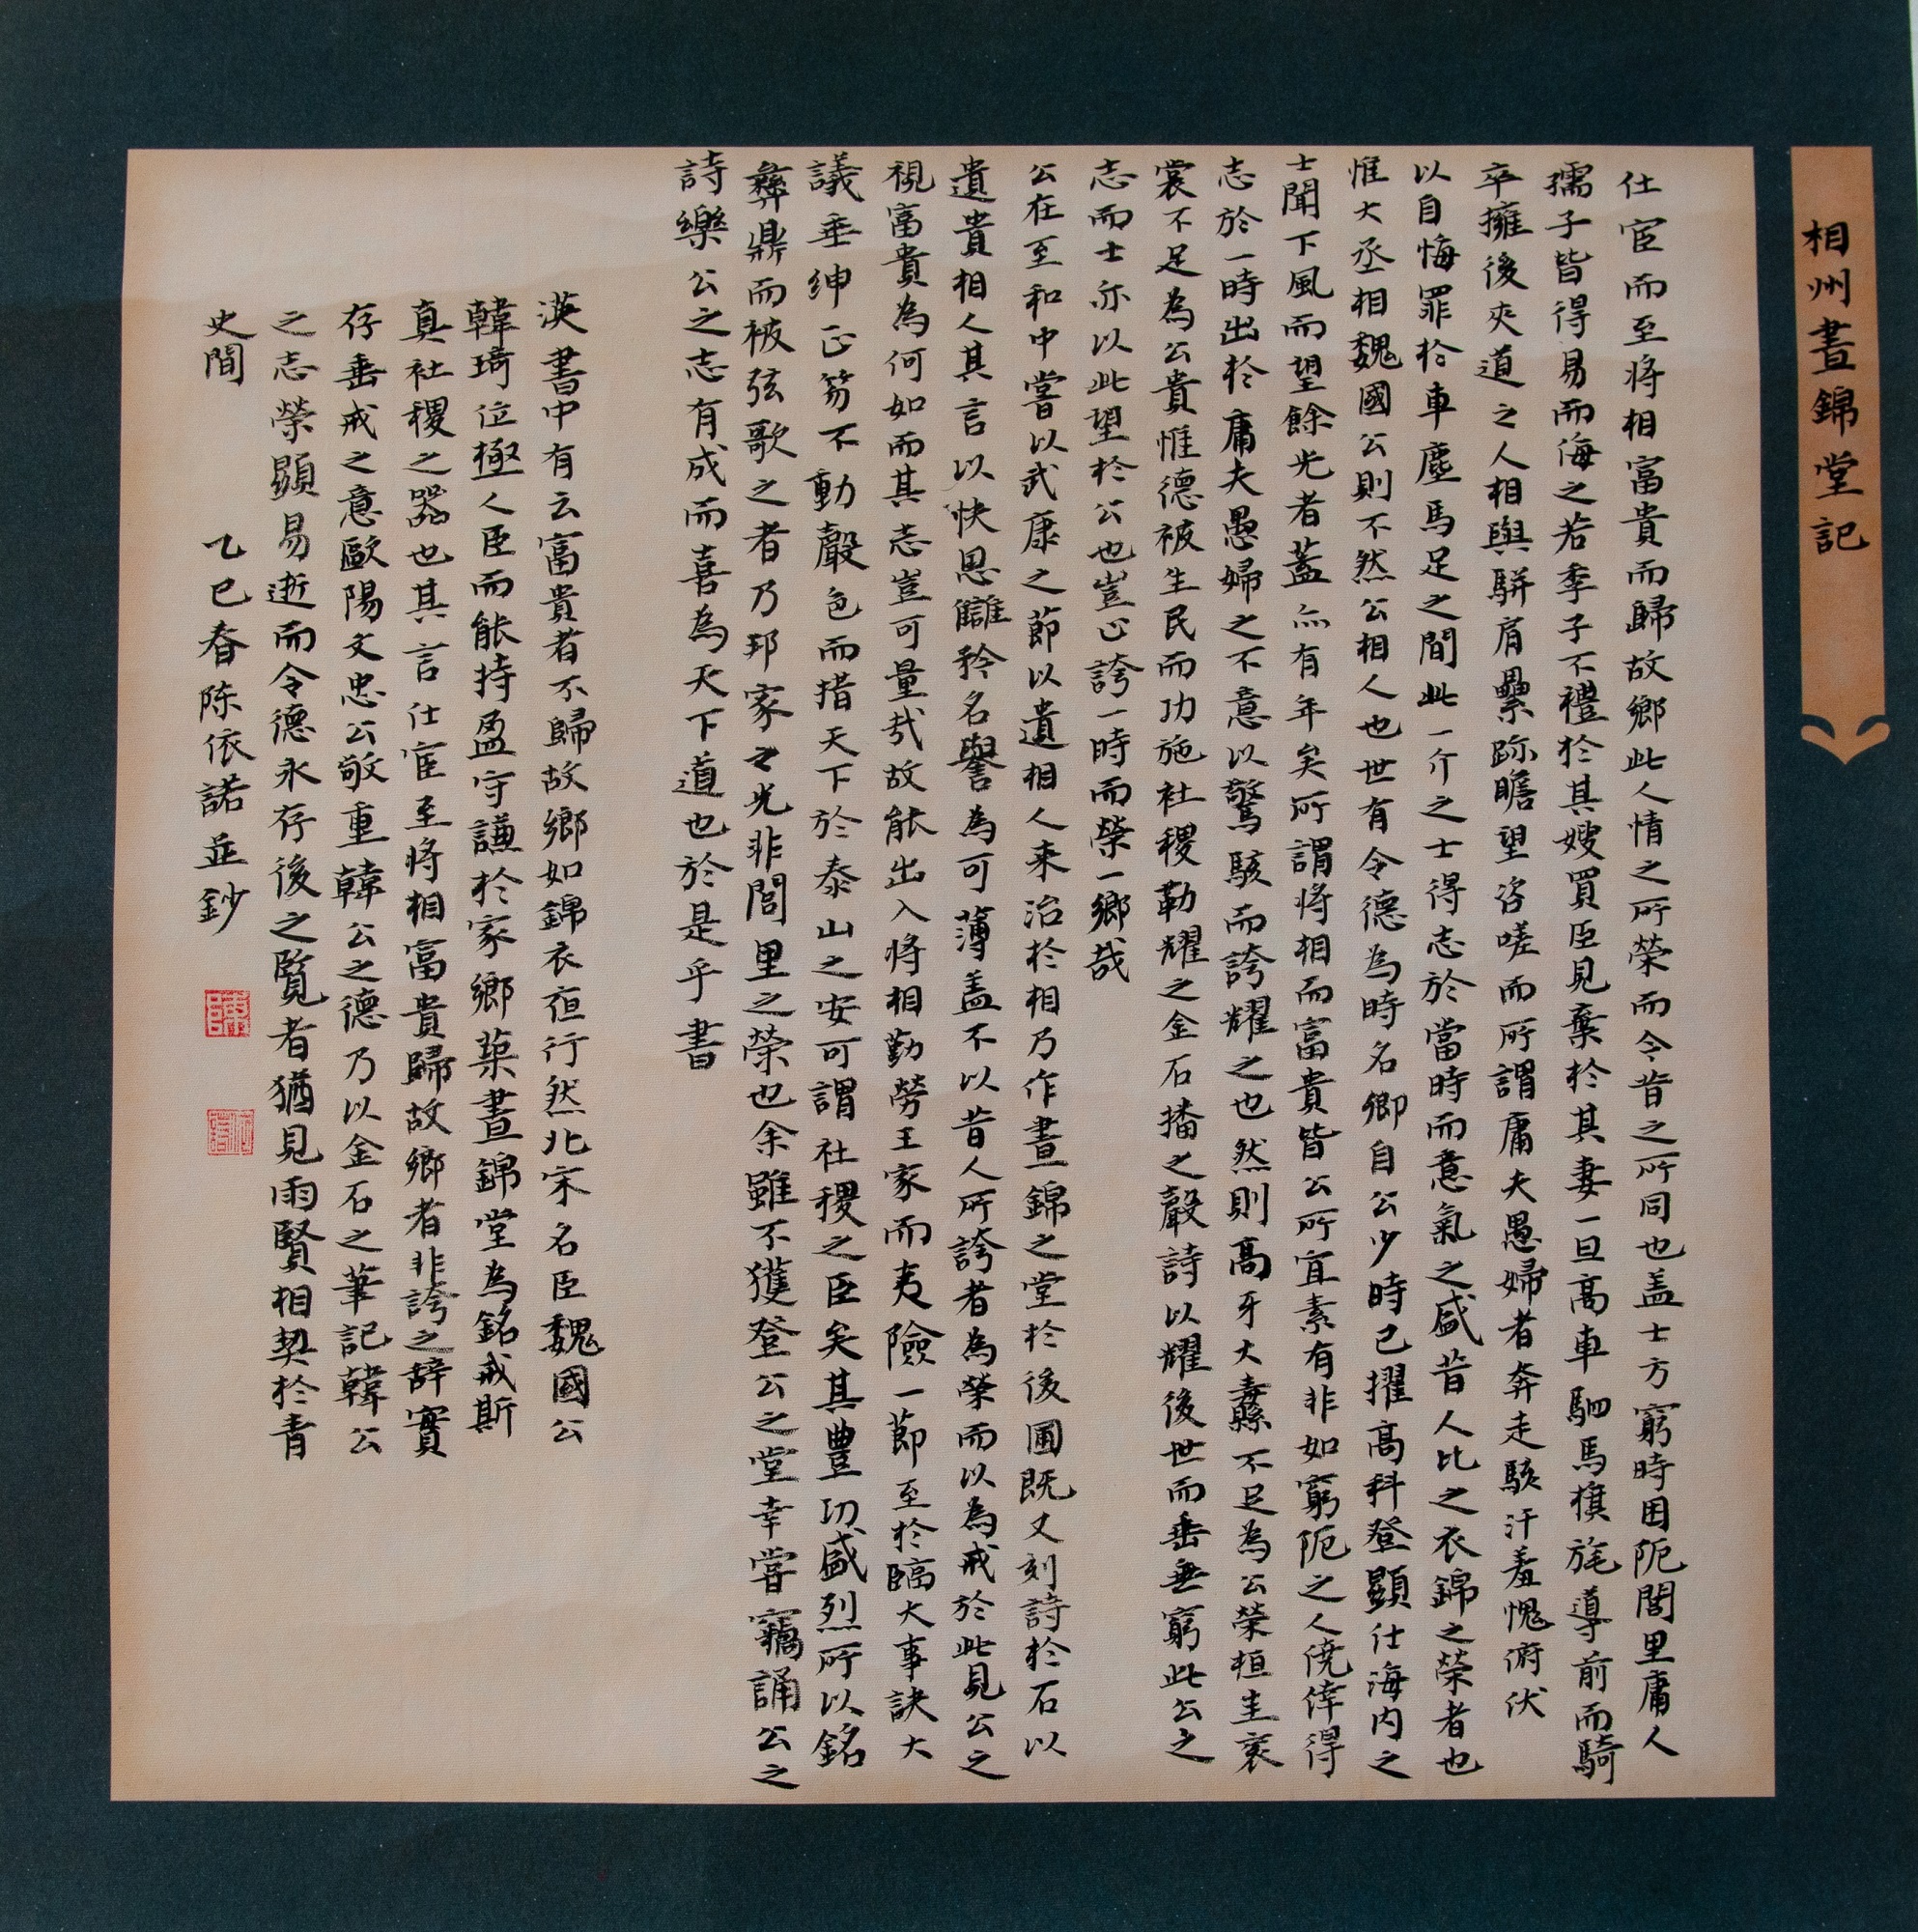 相州晝錦堂記
仕宦而至將相富貴而歸故鄉此人情之所榮而令昔之所同也盖士方窮時困阨閭里庸人
孺子皆得易而侮之若季子不禮於其嫂買臣見棄於其妻一旦高車駟馬旗旄導前而騎
卒擁後夾道之人相與駢肩纍跡瞻望咨嗟而所謂庸夫愚婦者奔走駭汗羞愧俯伏
以自悔罪於車塵馬足之間此一介之士得志於當時而意氣之盛昔人比之衣錦之榮者也
惟大丞相魏國公則不然公相人也世有令德為時名卿自公少時已擢高科登顯仕海內之
士聞下風而望餘光者蓋亦有年矣所謂將相而富貴皆公所宜素有非如窮阨之人僥倖得
志於一時出於庸夫愚婦之不意以驚駭而誇耀之也然則高牙大纛不足為公榮桓圭袞
裳不足為公貴惟德被生民而功施社稷勒耀之金石播之聲詩以耀後世而垂無窮此公之
志而士亦以此望於公也豈止誇一時而榮一鄉哉
公在至和中嘗以武康之節以遺相人来治於相乃作晝錦之堂於後圃既又刻詩於石以
遺貴相人其言以快恩讎矜名譽為可薄盖不以昔人所誇者為榮而以為戒於此見公之
視富貴為何如而其志豈可量哉故能出入將相勤勞王家而夷險一節至於臨大事訣大
議垂紳正笏不動聲色而措天下於泰山之安可謂社稷之臣矣其豐功盛烈所以銘
彝鼎而被弦歌之者乃邦家之光非閭里之榮也余雖不獲登公之堂幸嘗竊誦公之
詩樂公之志有成而喜為天下道也於是乎書
漢書中有云富貴者不歸故鄉如錦衣夜行然北宋名臣魏國公
韓琦位極人臣而能持盈守謙於家鄉築晝錦堂為銘戒斯
真社稷之器也其言仕宦至將相富貴歸故鄉者非誇之辭實
存垂戒之意歐陽文忠公敬重韓公之德乃以金石之筆記韓公
之志榮顯易逝而令德永存後之覽者猶見兩賢相契於青
史間　乙巳春陈依諾並鈔